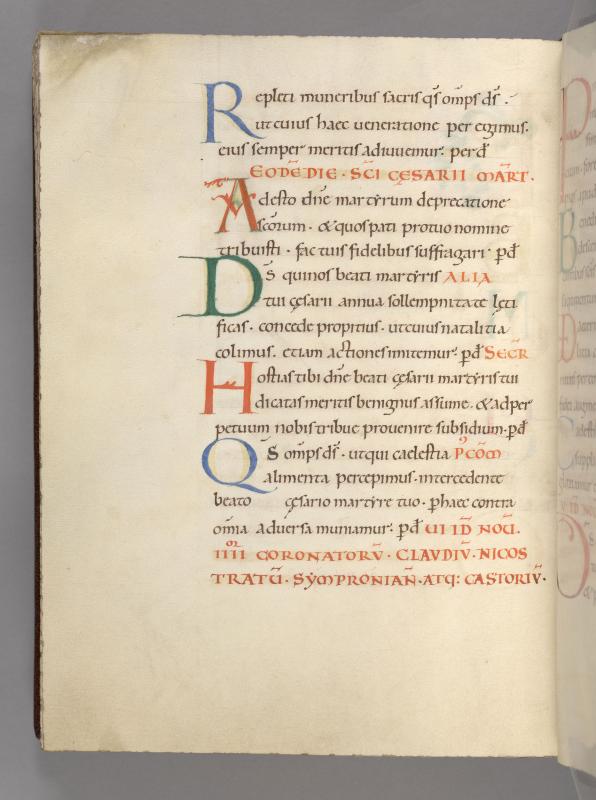 Repleti muneribus sacris qs̄ om̄ps d̄s .
ut cuius haec ueneratione per egimus.
eius semper meritis adiuuemur. per d̄
EODĒ DIE · SC̄I CESARII MĀRT .
Adesto dn̄e martẏrum deprecatione
sc̄orum · & quos pati pro tuo nomine
tribuisti · fac tuis fidelibus suffragari · p̄ d̄
D̄S qui nos beati martẏris ALIA
tui cęsarii annua sollempnitate lęti
ficas · concede propitius · ut cuius natalitia
colimus. etiam actiones imitemur. p̄ d̄ SECR̄
Hostias tibi dn̄e beati cęsarii martẏris tui
dicatas meritis benignus assume . & ad per
petuum nobis tribue prouenire subsidium. p̄ d̄
QS̄ om̄ps d̄s . ut qui caelestia P̄ COM̄
alimenta percepimus · intercedente
beato cęsario martẏre tuo · p̄ haec contra
om̄ia aduersa muniamur. p̄ d̄ UI ID̄ NOŪ.
IIII OR CORONATORŪ · CLAVDIŪ · NICOS
TRATŪ · SẎMPRONIAN̄ · ATQ: CASTORIŪ ·